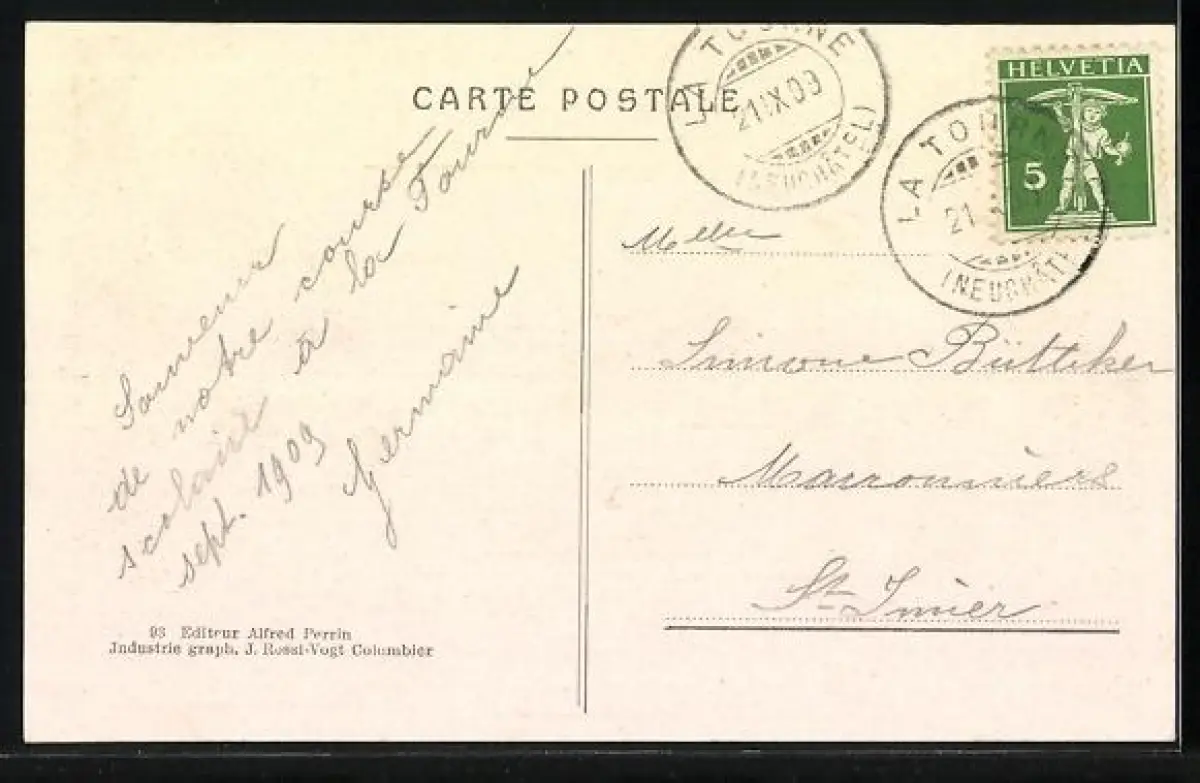 CARTE POSTALE
LA TOURNE
21.IX.09
(NEUCHÂTEL)
HELVETIA
5
LA TOURNE
21
(NEUCHÂTEL)
Souvenir
de notre course
scolaire à la Tourne
sept. 1909
Germaine
Melle
Simone Büttiker
Marronniers
St-Imier
93 Editeur Alfred Perrin
Industrie graph. J. Rossi-Vogt Colombier